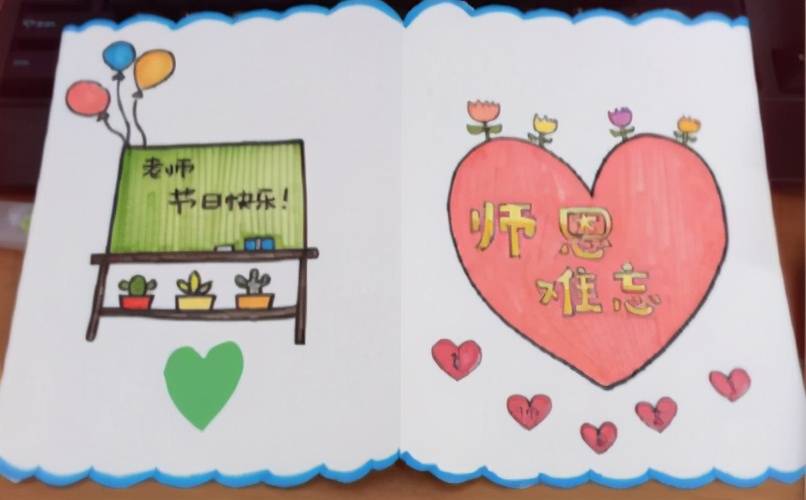 老师
节日快乐!
师恩
难忘